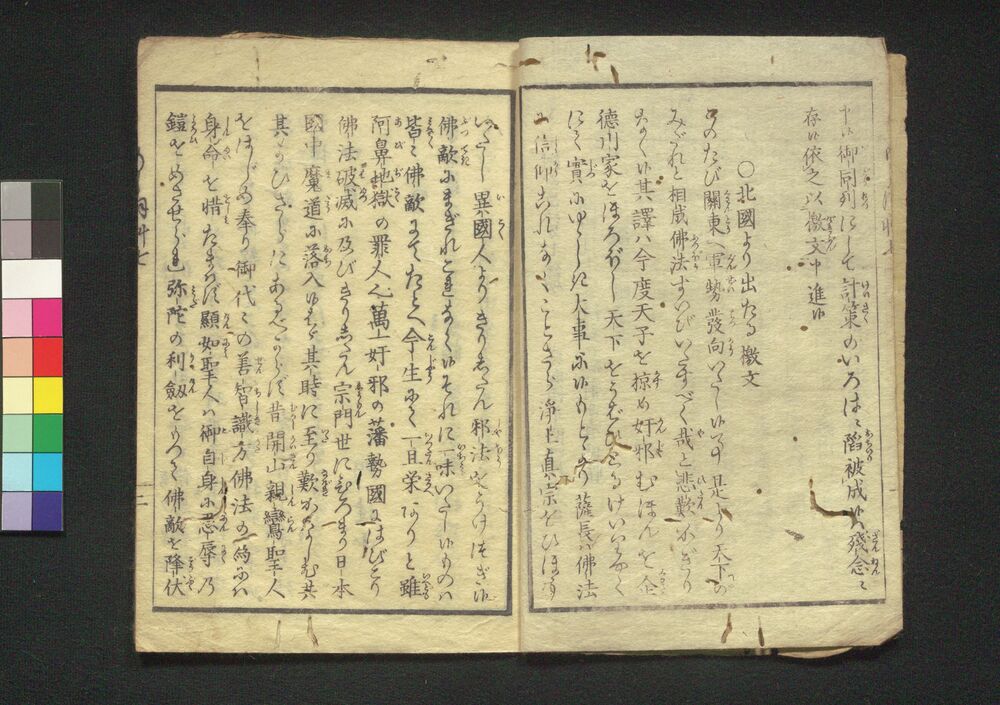 申候御同列にして計策のいろは〻陷被成候残念ニ
存候依之以檄文申進候
○北國より出たる檄文
このたび關東へ軍勢發向いたし候事是より天下の
みだれと相成佛法すいびいたすべく哉と悲歎かぎり
なく候其譯ハ今度天子を掠め奸邪むほんを企
徳川家をほろぼし天下をうばひとるけいりやく
にて實にゆゝしき大事に候もとより薩長ハ佛法
の信仰これなくことさら浄土真宗をひはう
いたし異國人よりきりしたん邪法をうけつぎ候
佛敵にまぎれこれなく候それに一味いたし候ものハ
皆〻佛敵にてたとへ今生にて一旦栄ありと雖
阿鼻地獄の罪人也萬一奸邪の藩勢國にはびこり
佛法破滅に及びきりしたん宗門世にひろまり日本
國中魔道に落入候はゞ其時に至り歎かなしむ共
其かひさらにあるべからず昔開山親鸞聖人
をはじめ奉り御代〻の善智識方佛法の為にハ
身命を惜たまはず顯如聖人ハ御自身に忍辱乃
鎧をめさせられ弥陀の利劔をもつて佛敵を降伏